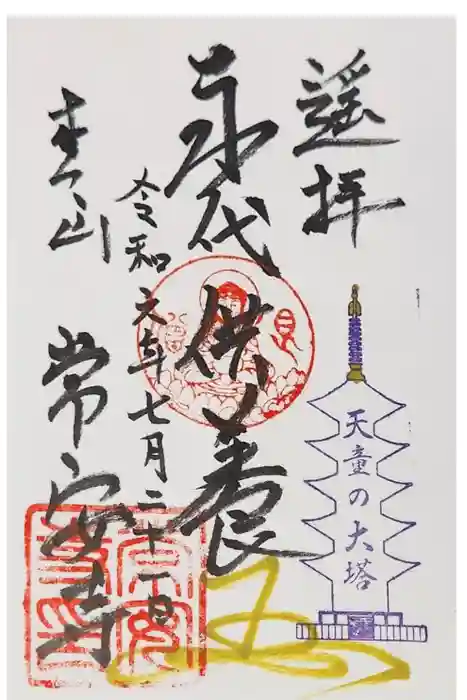 遥拝
天童の大塔
永代供養
令和元年七月二十一日
常安寺